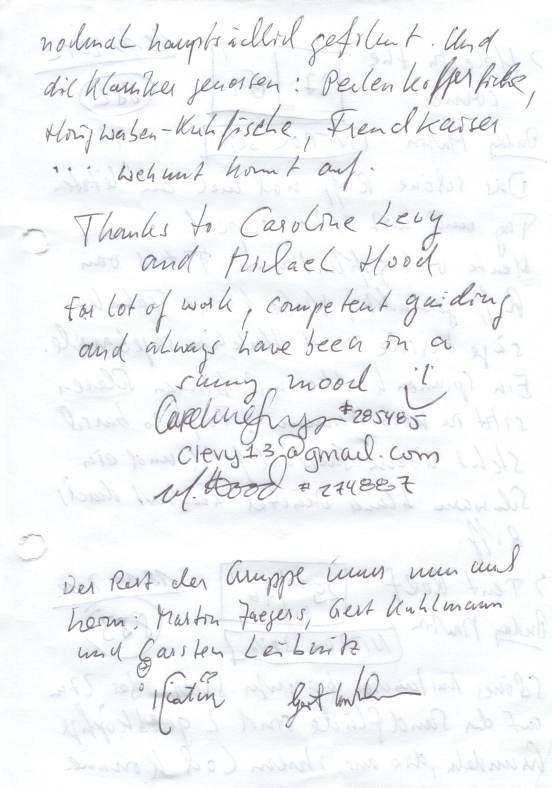 nochmal hauptsächlich gefilmt. Und
die Klassiker genossen: Perlenkofferfische,
Honigwaben-Kuhfische, Trendkaiser
... Wehmut kommt auf.
Thanks to Caroline Levy
and Michael Hood
for lot of work, competent guiding
and always have been in a
sunny mood
#285485
clevy13@gmail.com
M. Hood #274887
Der Rest der Gruppe muss nun auch
heim: Martin Jaegers, Gert Kuhlmann
und Carsten Leibnitz
Martin